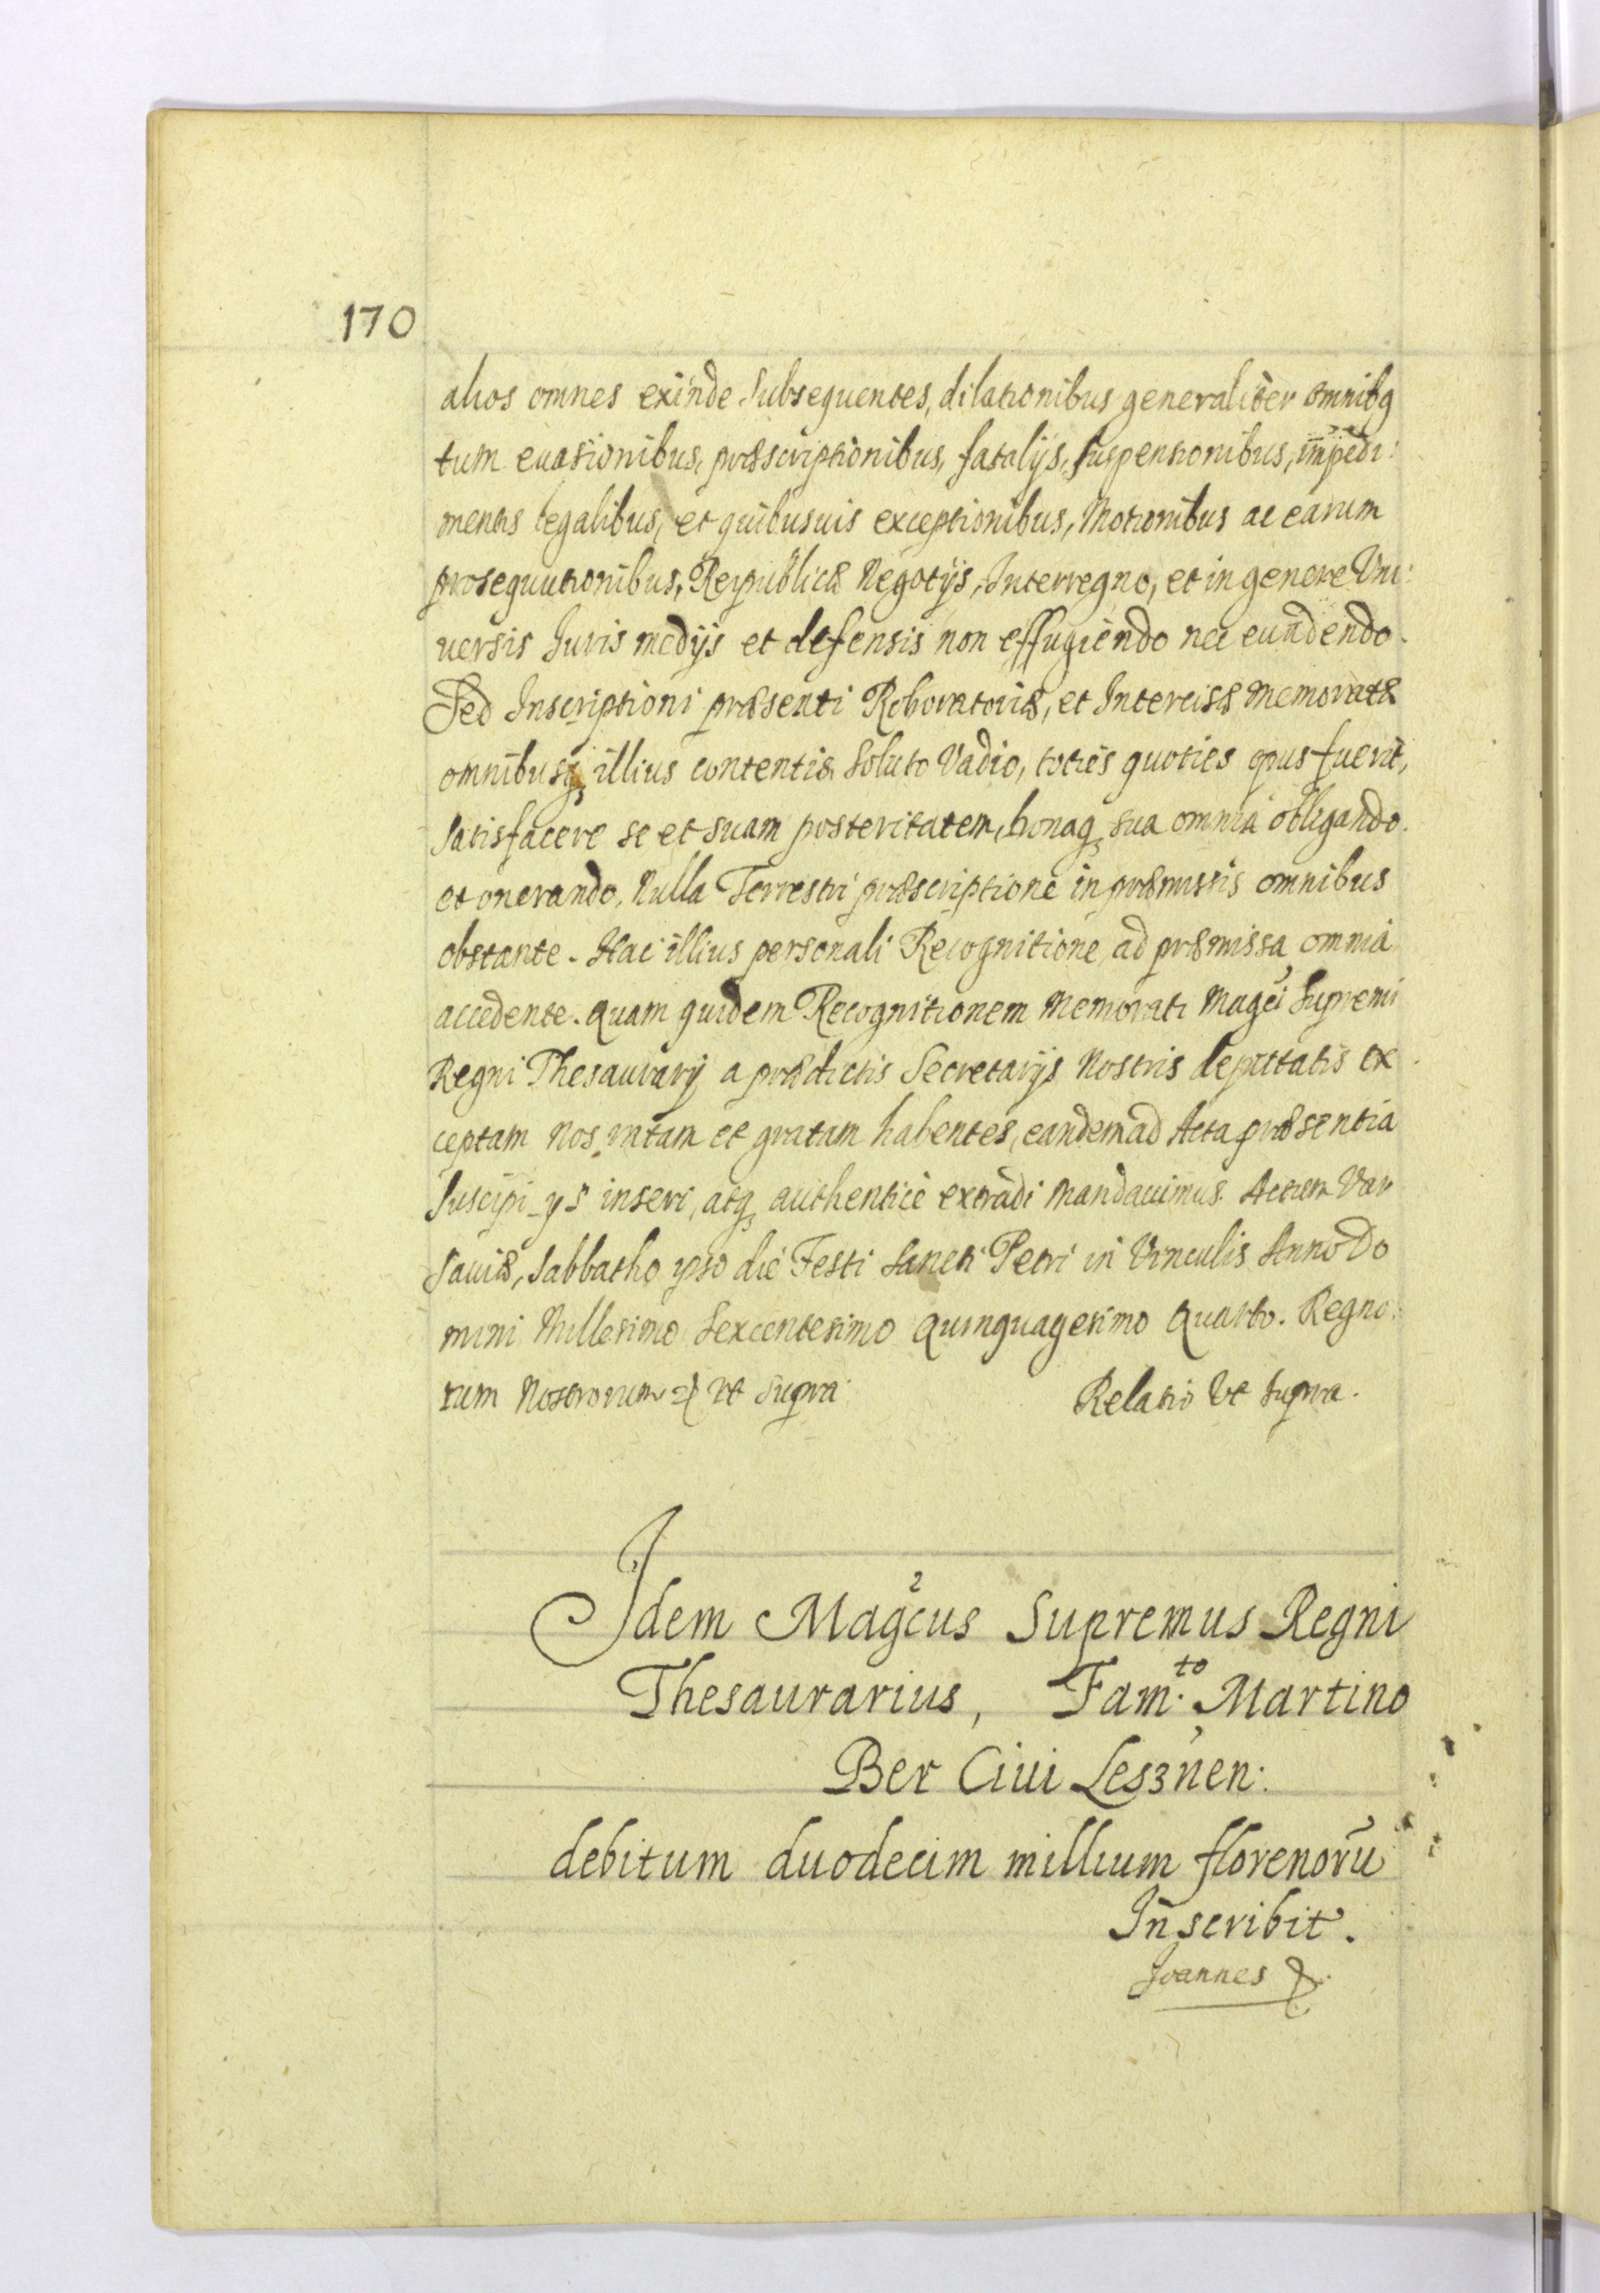 170
alios omnes exinde subsequentes, dilationibus generaliter omnibq
tum euasionibus, præscriptionibus, fatalijs, suspensionibus, impedi:
mentis legalibus, et quibusuis exceptionibus, Motionibus ac earum
prosequutionibus, Reipublicæ Negotijs, Interregno, et in genere Vni:
uersis Iuris medijs et defensis non effugiendo nec euadendo.
Sed Inscriptioni præsenti Roboratoriæ, et Intercisæ memoratæ
omnibusq illius contentis soluto Vadio, toties quoties opus fuerit,
satisfacere se et suam posteritatem, bonaq sua omnia obligando
et onerando, Nulla Terrestri præscriptione in præmissis omnibus
obstante. Hac illius personali Recognitione ad præmissa omnia
accedente. Quam quidem Recognitionem Memorati Magci Supremi
Regni Thesaurarij a prædictis Secretarijs Nostris deputatis ex
ceptam Nos ratam et gratam habentes, eandem ad Acta præsentia
suscipi ijs inseri, atq authentice extradi Mandauimus. Actum Var
sauiæ, Sabbatho ipso die Festi Sancti Petri in Vinculis Anno Do
mini Millesimo Sexcentesimo Quinquagesimo Quarto. Regno:
rum Nostrorum ut supra. Relatio Vt supra.
Idem Magcus Supremus Regni
Thesaurarius, Fam.to Martino
Ber Ciui Lesznen:
debitum duodecim millium florenorū
Inscribit.
Joannes